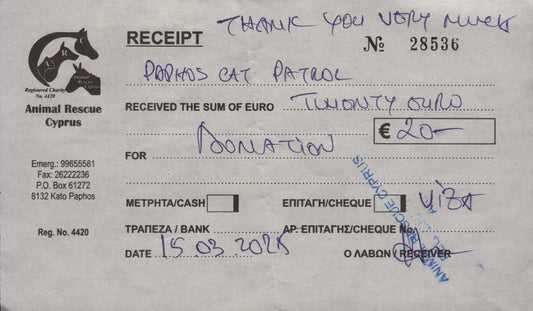 THANK YOU VERY MUCH
RECEIPT
No 28536
PAPHOS CAT PATROL
Registered Charity
No. 4420
Animal Rescue
Cyprus
RECEIVED THE SUM OF EURO TWONTY EURO
€ 20-
FOR DONATION
Emerg.: 99655581
Fax: 26222236
P.O. Box 61272
8132 Kato Paphos
ΜΕΤΡΗΤΑ/CASH
ΕΠΙΤΑΓΗ/CHEQUE VIZA
Reg. No. 4420
ΤΡΑΠΕΖΑ / BANK
ΑΡ. ΕΠΙΤΑΓΗΣ/CHEQUE No.
DATE 15.03.202
Ο ΛΑΒΩΝ / RECEIVER
ANIMAL RESCUE CYPRUS